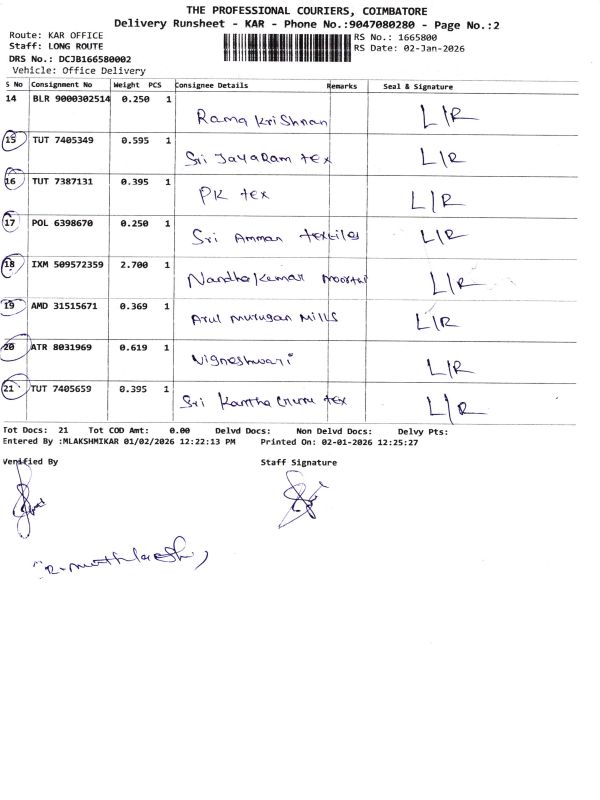 THE PROFESSIONAL COURIERS, COIMBATORE
Delivery Runsheet - KAR - Phone No.:9047080280 - Page No.:2
Route: KAR OFFICE
RS No.: 1665800
Staff: LONG ROUTE
RS Date: 02-Jan-2026
DRS No.: DCJB166580002
Vehicle: Office Delivery
S No Consignment No Weight PCS Consignee Details Remarks Seal & Signature
14 BLR 9000302514 0.250 1 Rama Krishnan L/R
15 TUT 7405349 0.595 1 Sri Jayaram tex L/R
16 TUT 7387131 0.395 1 PK tex L/R
17 POL 6398670 0.250 1 Sri Amman textiles L/R
18 IXM 509572359 2.700 1 Nandha Kumar L/R
19 AMD 31515671 0.369 1 Arul Murugan Mills L/R
20 ATR 8031969 0.619 1 Vigneshwari L/R
21 TUT 7405659 0.395 1 Sri Kantha Guru tex L/R
Tot Docs: 21 Tot COD Amt: 0.00 Delvd Docs: Non Delvd Docs: Delvy Pts:
Entered By :MLAKSHMIKAR 01/02/2026 12:22:13 PM Printed On: 02-01-2026 12:25:27
Verified By Staff Signature